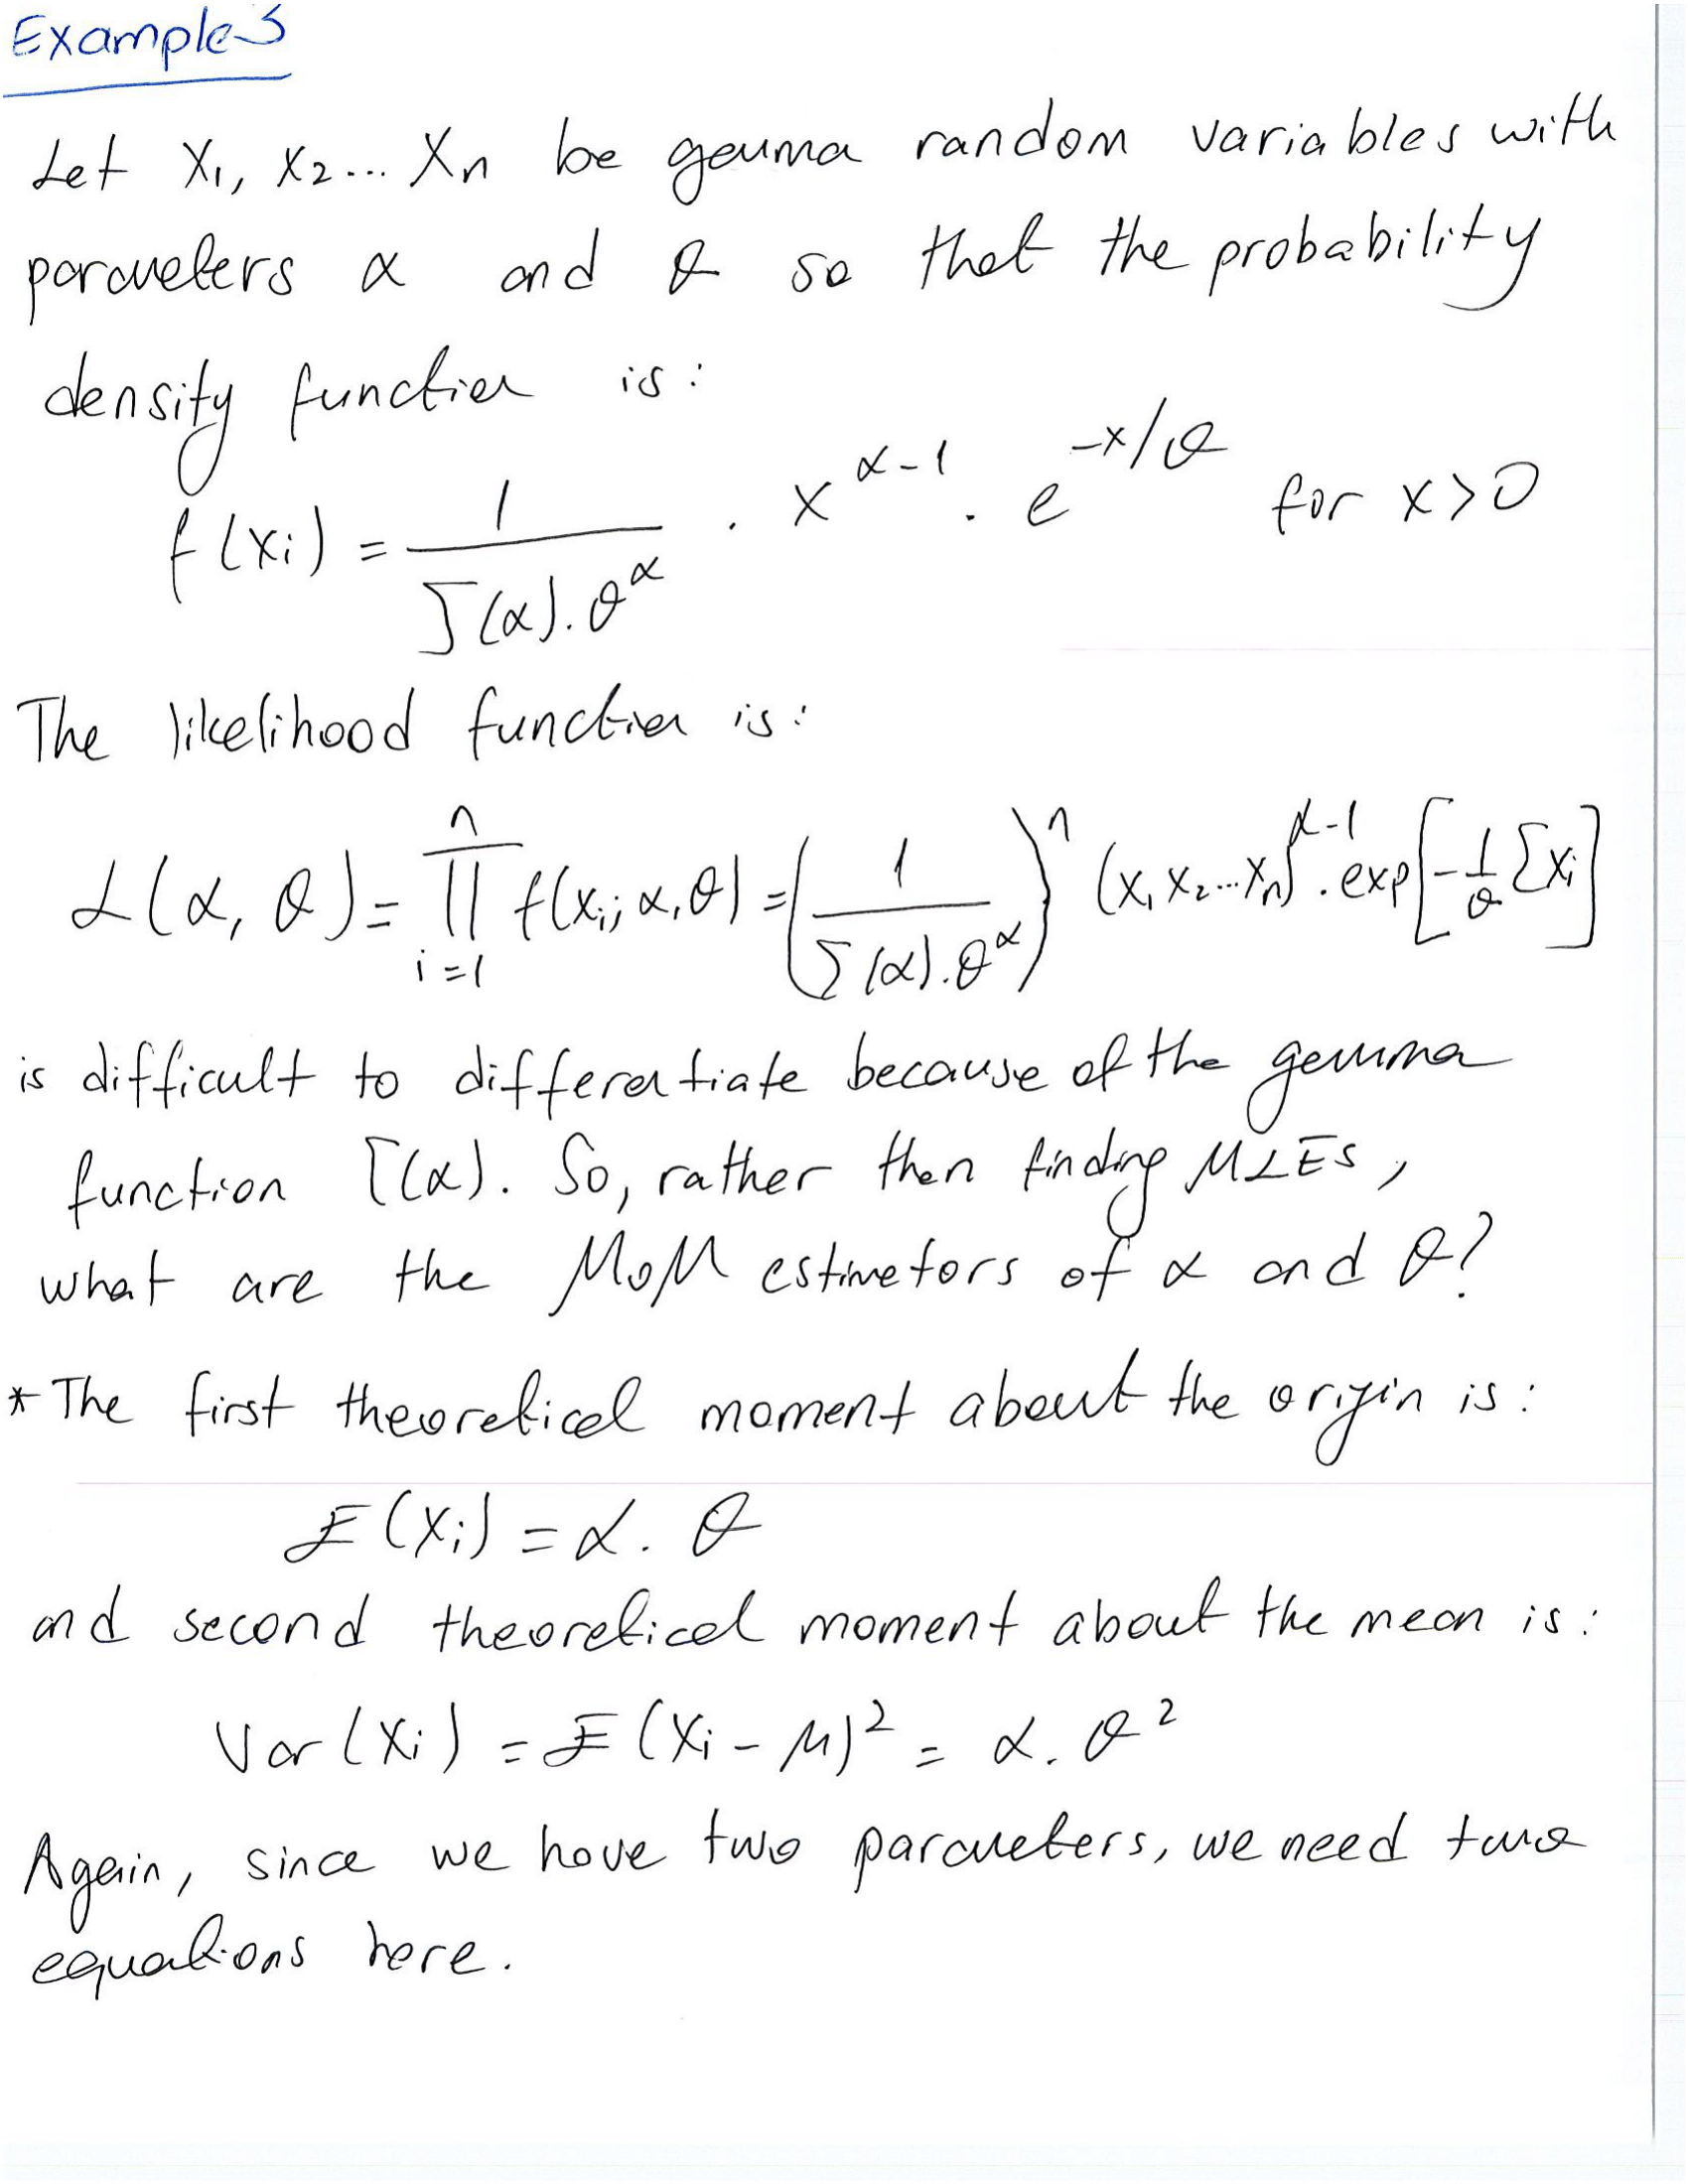 Example 3
Let X₁, X₂... Xₙ be gamma random variables with
parameters α and θ so that the probability
density function is:
f(xᵢ) = 1 / (Γ(α).θ^α) . x^(α-1) . e^(-x/θ) for x>0
The likelihood function is:
L(α, θ) = ∏_{i=1}^{n} f(xᵢ; α, θ) = (1 / (Γ(α).θ^α))^n (x₁x₂...xₙ)^(α-1) . exp[-1/θ Σxᵢ]
is difficult to differentiate because of the gamma
function Γ(α). So, rather than finding MLEs,
what are the MoM estimators of α and θ?
* The first theoretical moment about the origin is:
E(Xᵢ) = α . θ
and second theoretical moment about the mean is:
Var(Xᵢ) = E(Xᵢ - μ)² = α . θ²
Again, since we have two parameters, we need two
equations here.